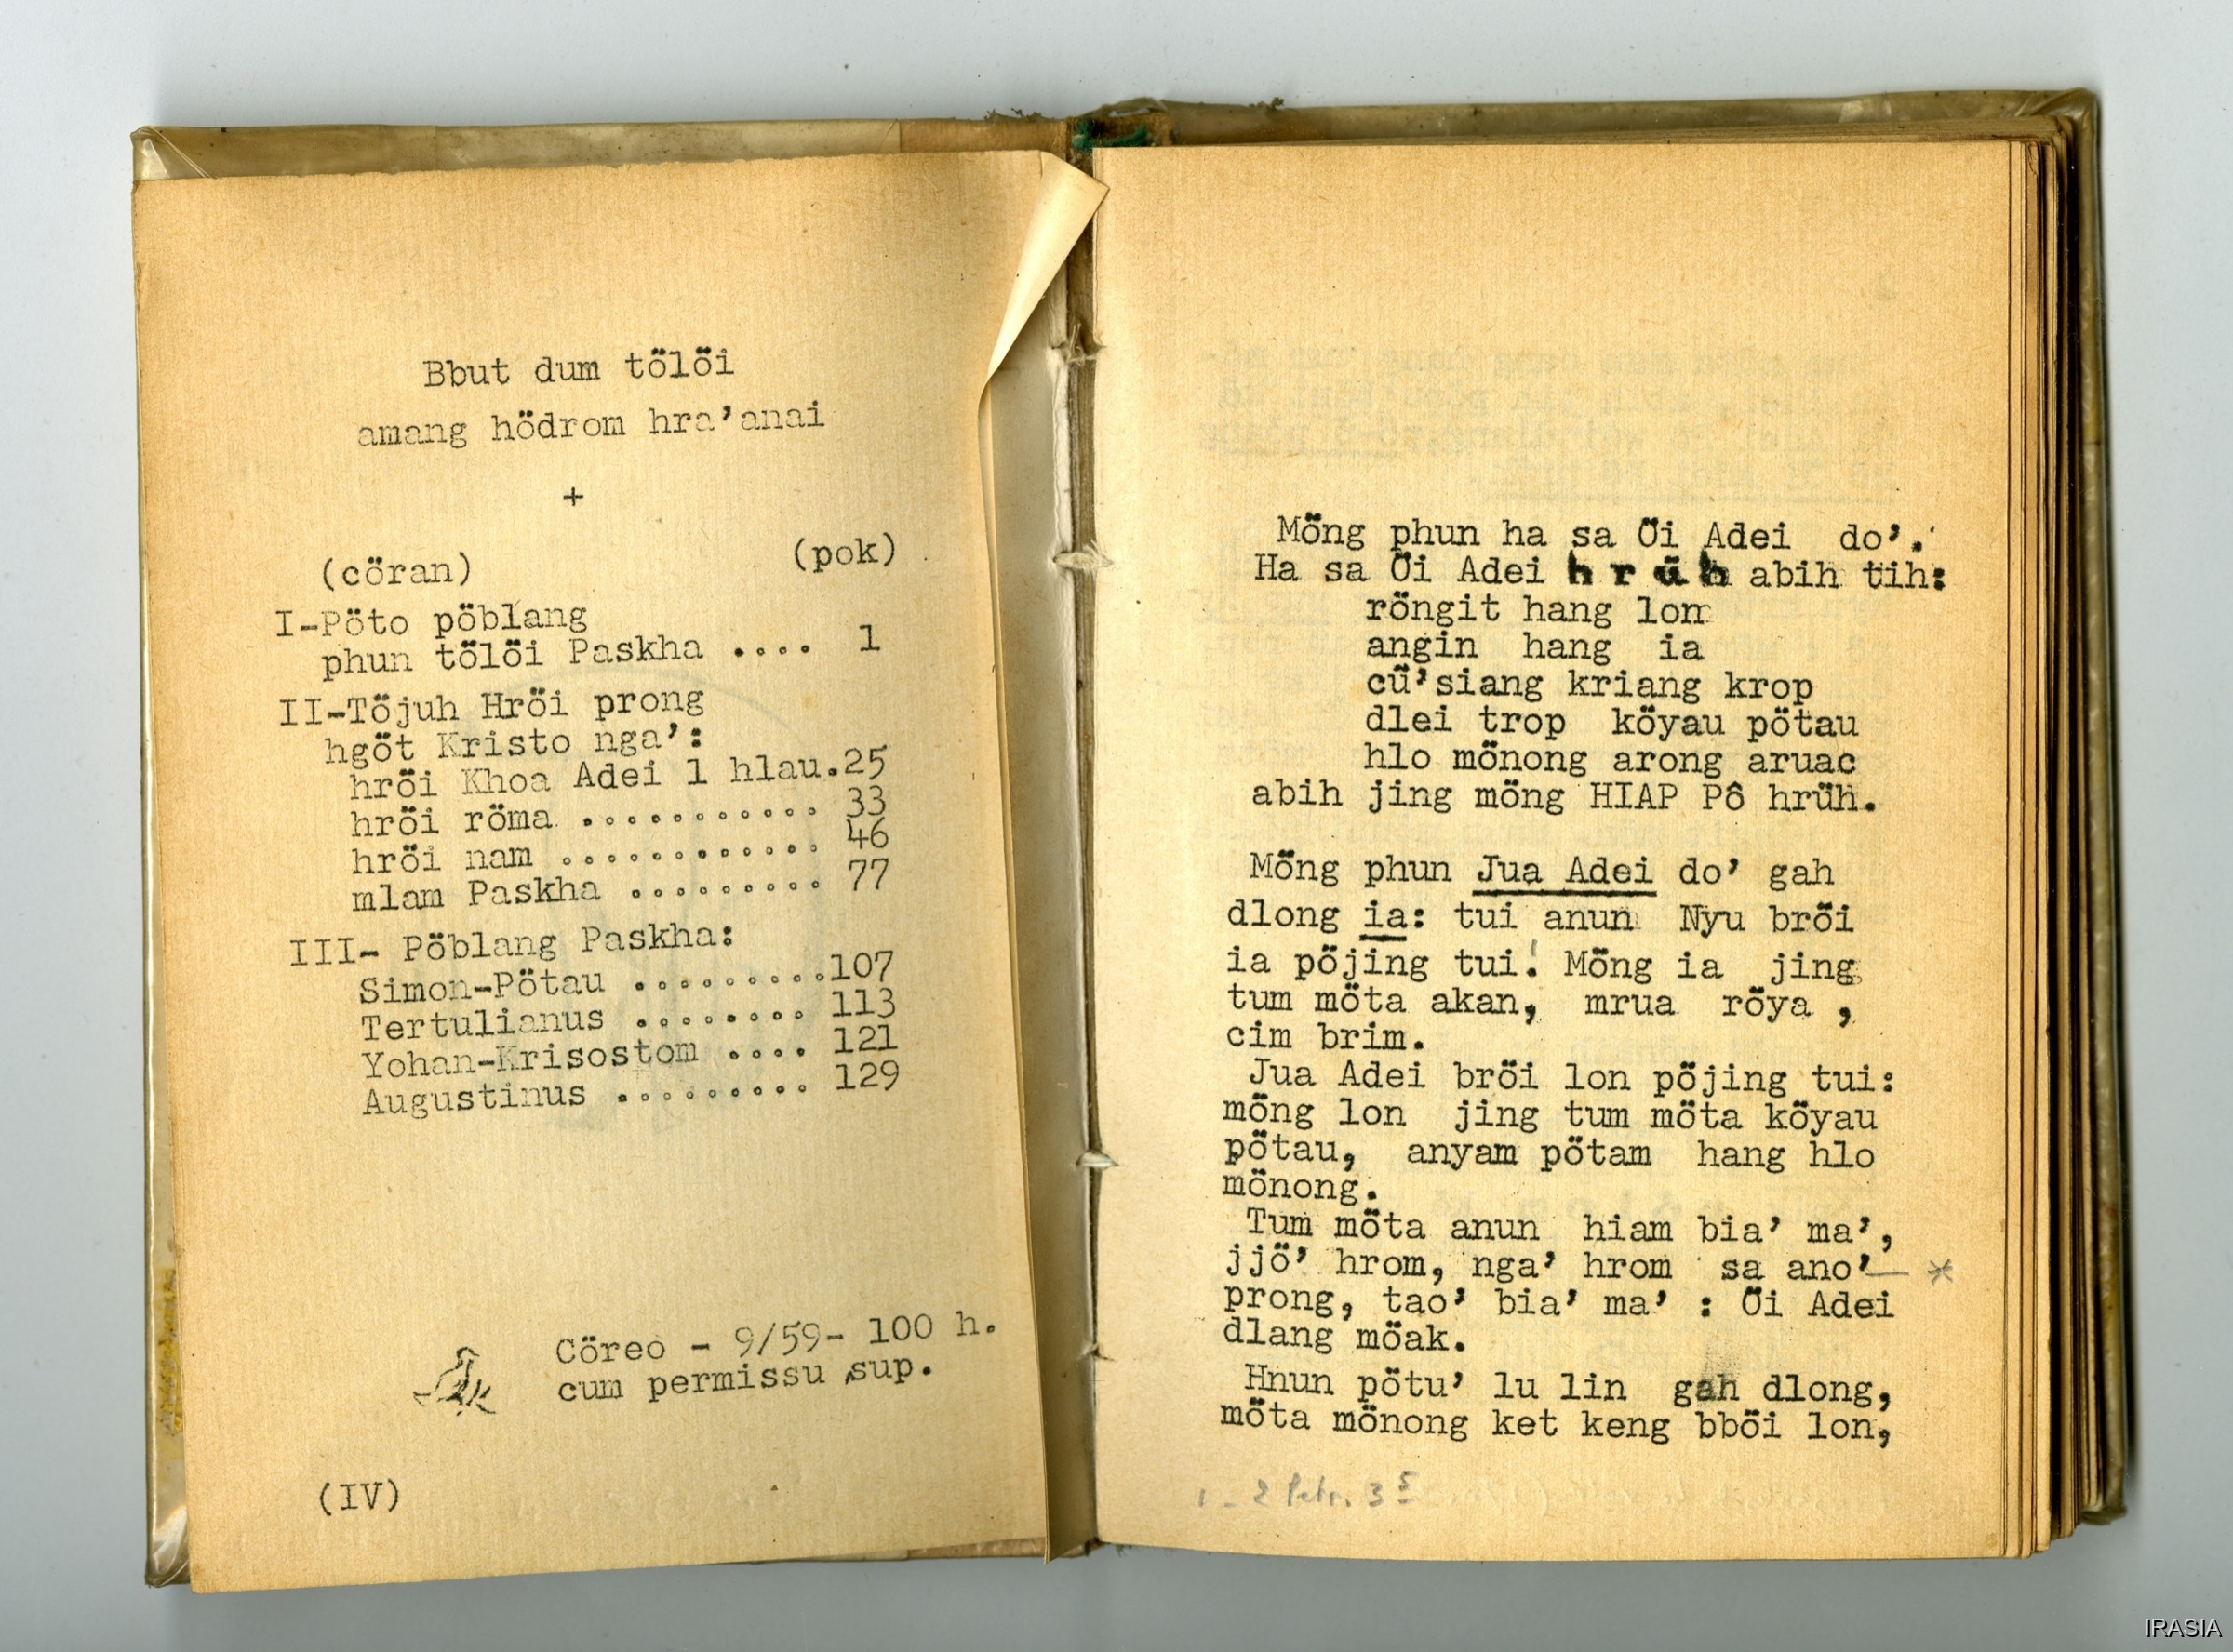 Bbut dum tölöi
amang hödrom hra’anai
+
(cöran) (pok)
I-Pöto pöblang
phun tölöi Paskha .... 1
II-Töjuh Hröi prong
hgöt Kristo nga’:
hröi Khoa Adei l hlau.25
hröi röma ........... 33
hröi nam ............ 46
mlam Paskha ......... 77
III- Pöblang Paskha:
Simon-Pötau .........107
Tertulianus ........ 113
Yohan-Krisostom .... 121
Augustinus ......... 129
Cöreo - 9/59- 100 h.
cum permissu sup.
(IV)
Möng phun ha sa Öi Adei do’.
Ha sa Öi Adei hrüh abih tih:
röngit hang lon
angin hang ia
cü’siang kriang krop
dlei trop köyau pötau
hlo mönong arong aruac
abih jing möng HIAP Pô hrüh.
Möng phun Jua Adei do’ gah
dlong ia: tui anun Nyu bröi
ia pöjing tui! Möng ia jing
tum möta akan, mrua röya ,
cim brim.
Jua Adei bröi lon pöjing tui:
möng lon jing tum möta köyau
pötau, anyam pötam hang hlo
mönong.
Tum möta anun hiam bia’ ma’,
jjö’ hrom, nga’ hrom sa ano’ *
prong, tao’ bia’ ma’ : Öi Adei
dlang möak.
Hnun pötu’ lu lin gah dlong,
möta mönong ket keng bböi lon,
1 - 2 Petr. 3 5
IRASIA